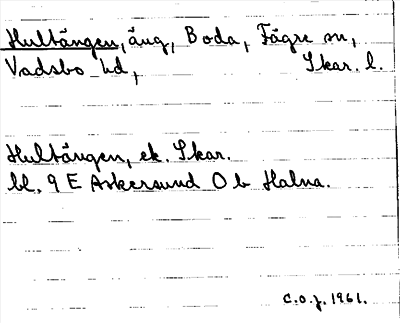 Hultängen, äng, Boda, Fägre sn,
Vadsbo hd, Skar. l.
Hultängen, ek. Skar.
bl. 9 E Askersund O b Halna.
C.O.J. 1961.